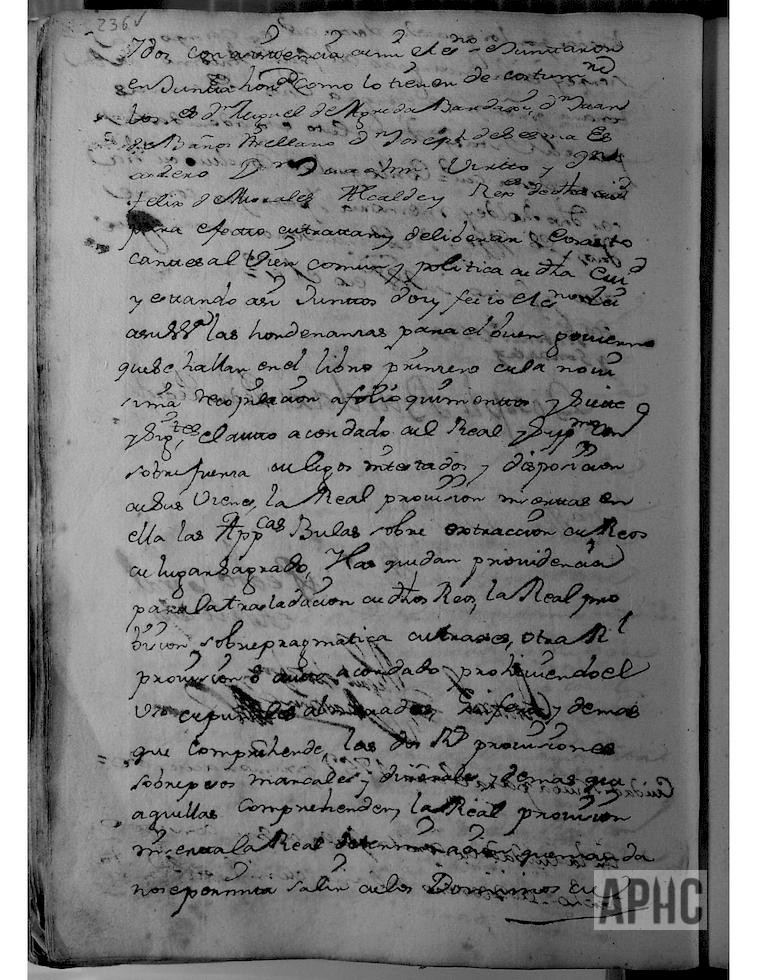 236
Ydos con asistencia de mi el es.no se Juntaron
en Junta hon.da como lo tienen de costumbre
los s.es D.n Miguel de Agreda Bardaxi, D.n Juan
de Baños Arellano D.n Joseph de Lesma Es
cudero D.n Joachin Virto y D.n
Felix de Morales Alcalde y Rex.es de dha ciu.d
para efecto de tratar y deliberar Cosas to
cantes al Vien comun y politica de dha Ciu.d
y estando asi Juntos doy fee io el es.no lei
a sus SS.as las hordenanzas para el buen govierno
que se hallan en el libro primero de la novi
sima recopilacion a folio quinientos y siete
y sig.tes, el auto acordado del Real y Sup.mo con
sobre fuerza de legos intestados y disposicion
de sus Vienes, la Real provision insertas en
ella las App.cas Bulas sobre extraccion de Reos
de lugar sagrado, Has quidan providencia
para la trasladacion de dhos Reos, la Real pro
bision sobre pragmatica de traxes, otra R.l
provision o auto acordado prohiviendo el
Uso de puñales y demas
que Comprehende, las dos R.s provisiones
sobre pesos marcales y dinerales y demas que
aquellas Comprehenden, la Real provision
inserta la Real determinacion que
no se permita salir de los Dominios de
APHC